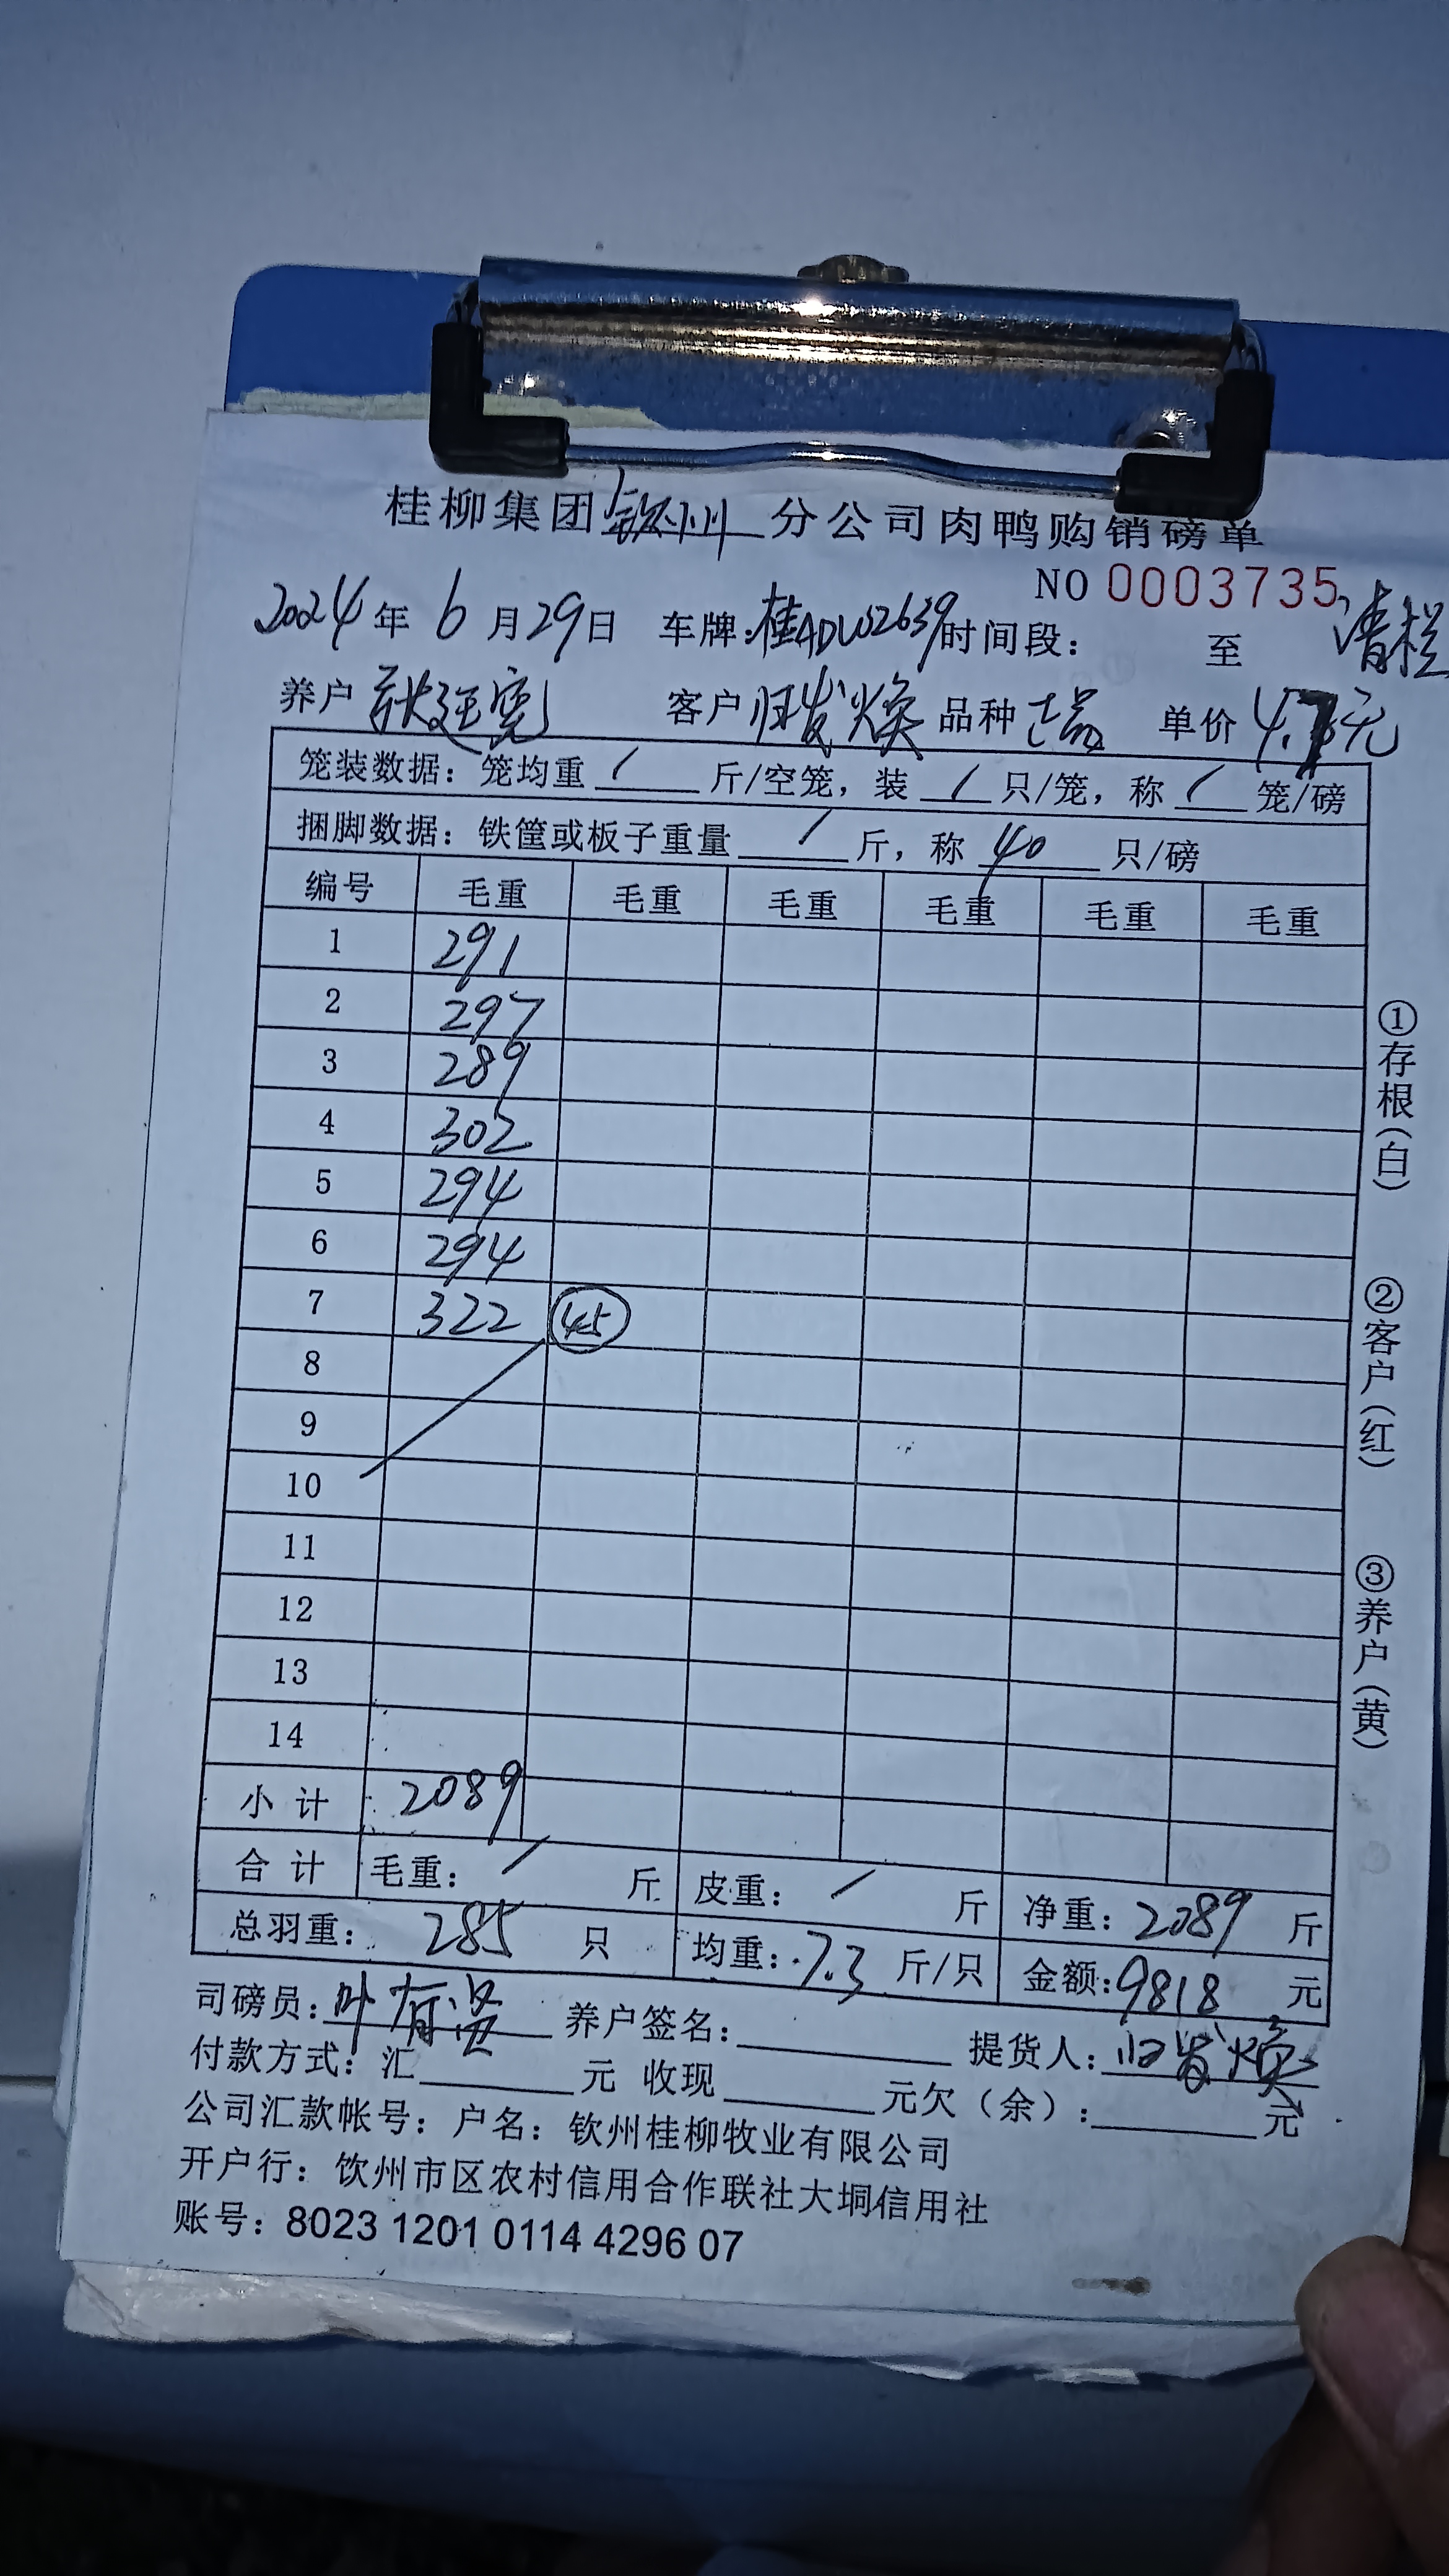 桂柳集团钦州分公司肉鸭购销磅单
NO 0003735
2024年6月29日 车牌:桂ADW2639时间段: 至 清栏
养户 耿廷宽 客户 归发焕 品种 土瑞 单价 4.7元
笼装数据: 笼均重 / 斤/空笼, 装 / 只/笼, 称 / 笼/磅
捆脚数据: 铁筐或板子重量 / 斤, 称 40 只/磅
编号 毛重 毛重 毛重 毛重 毛重 毛重
1 291
2 297
3 289
4 302
5 294
6 294
7 322 45
8
9
10
11
12
13
14
小计 2089
合计 毛重: / 斤 皮重: / 斤 净重: 2089 斤
总羽重: 285 只 均重: 7.3 斤/只 金额: 9818 元
司磅员: 叶有 养户签名: 提货人: 归发焕
付款方式: 汇 元 收现 元欠(余): 元
公司汇款帐号: 户名: 钦州桂柳牧业有限公司
开户行: 钦州市区农村信用合作联社大垌信用社
账号: 8023 1201 0114 4296 07
①存根(白)
②客户(红)
③养户(黄)